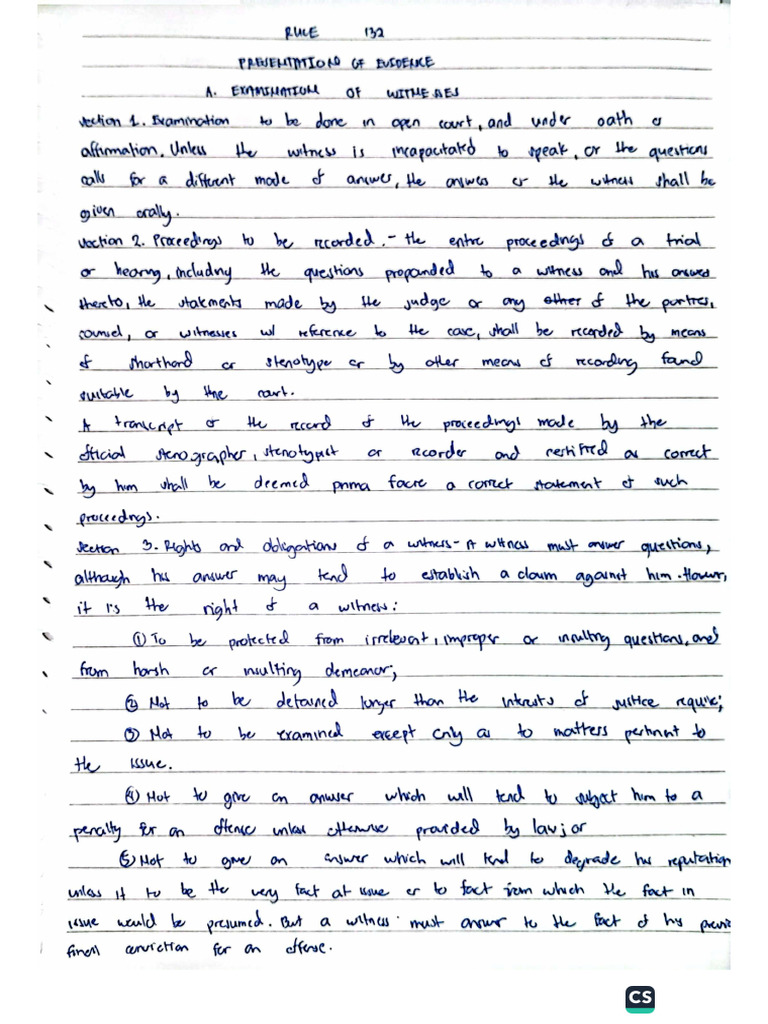 RULE 132
PRESENTATION OF EVIDENCE
A. EXAMINATION OF WITNESSES
Section 1. Examination to be done in open court, and under oath or
affirmation. Unless the witness is incapacitated to speak, or the questions
calls for a different mode of answer, the answers of the witness shall be
given orally.
Section 2. Proceedings to be recorded. - the entire proceedings of a trial
or hearing, including the questions propounded to a witness and his answers
thereto, the statements made by the judge or any other of the parties,
counsel, or witnesses w/ reference to the case, shall be recorded by means
of shorthand or stenotype or by other means of recording found
suitable by the court.
A transcript of the record of the proceedings made by the
official stenographer, stenotypist or recorder and certified as correct
by him shall be deemed prima facie a correct statement of such
proceedings.
Section 3. Rights and obligations of a witness - A witness must answer questions,
although his answer may tend to establish a claim against him. However,
it is the right of a witness:
① To be protected from irrelevant, improper or insulting questions, and
from harsh or insulting demeanor;
② Not to be detained longer than the interests of justice require;
③ Not to be examined except only as to matters pertinent to
the issue.
④ Not to give an answer which will tend to subject him to a
penalty for an offense unless otherwise provided by law; or
⑤ Not to give an answer which will tend to degrade his reputation
unless it to be the very fact at issue or to fact from which the fact in
issue would be presumed. But a witness must answer to the fact of his previous
final conviction for an offense.
CS